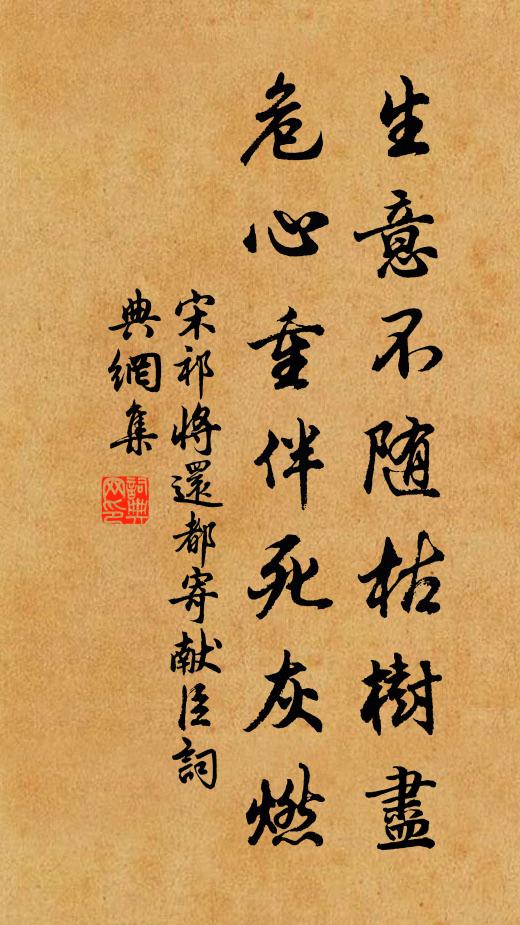 生意不随枯樹盡
危心重伴死灰燃
宋祁將還都寄献臣詞
典網集
詞典網印